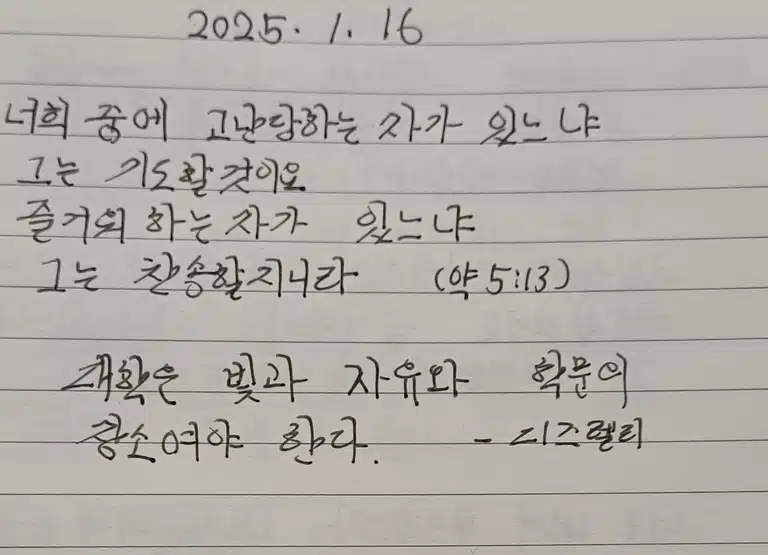 2025. 1. 16
너희 중에 고난당하는 자가 있느냐
그는 기도할것이요
즐거워 하는 자가 있느냐
그는 찬송할지니라 (약 5:13)
대학은 빛과 자유와 학문의
장소여야 한다. - 디즈렐리